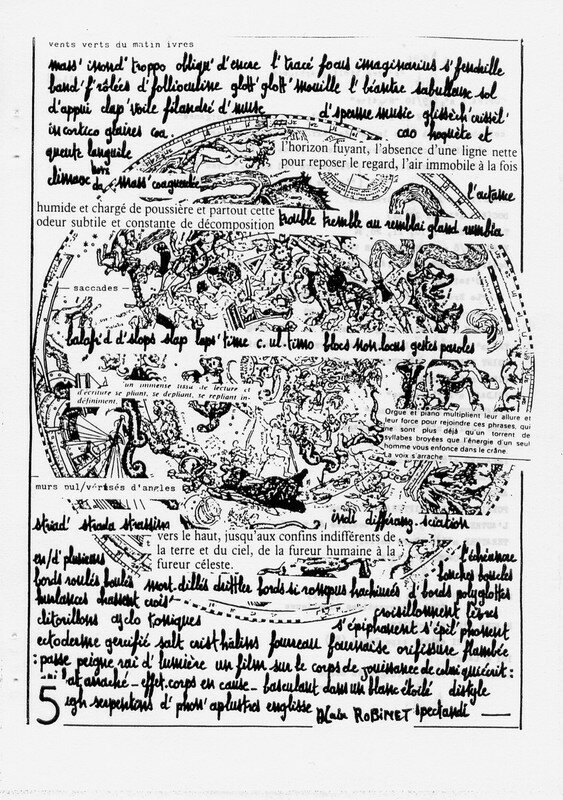 vents verts du matin ivres
mass' inond' troppo obliqu' d'encre l' tracé focus imaginarius s' fendille
band' f'rôlées d'follioculine glott' glott' mouille l' béantre sabulleux sol
d'appui clap' voile filandré d' musc d'sperme music glissich' cuissil'
in cortico glaires coa cao hoquète et
queute languile
l'horizon fuyant, l'absence d'une ligne nette
pour reposer le regard, l'air immobile à la fois
climax hors du mass' coagende
l'octave
humide et chargé de poussière et partout cette
odeur subtile et constante de décomposition
trouble tremble au remblai gland rumbia
saccades
balafr'd d'slops slap laps' time c. ul. timo blocs non locus gestes paroles
un immense tissu de lecture et
d'écriture se pliant, se dépliant, se repliant in-
définiment.
Orgue et piano multiplient leur allure et
leur force pour rejoindre ces phrases, qui
ne sont plus déjà qu'un torrent de
syllabes broyées que l'énergie d'un seul
homme vous enfonce dans le crâne.
La voix s'arrache.
murs pul/vérisés d'angles
striad' strada strassing indi différanz. sciation
vers le haut, jusqu'aux confins indifférents de
la terre et du ciel, de la fureur humaine à la
fureur céleste.
en/d' plusieurs l'échiancre
bords roulés boulés mort. dillés d'littler bords si rompus hachurés d' bords polyglottes
bouches boucles
hurlances chassent crois' croisillonnent lèvres
clitorillons cyclo toniques s'épiphanent s'épil' phonent
ectoderme gercifié salt crist'hâlins fourneau fournaise orifissure flambée
: passe peigne rai d' lumière un film sur le corps de jouissance de celui qui écrit :
l'at arraché - effet. corps en cause - basculant dans un blanc étoilé distyle
5 sgh serpentons d' phon' aplustres englisse Alain ROBINET spectandi